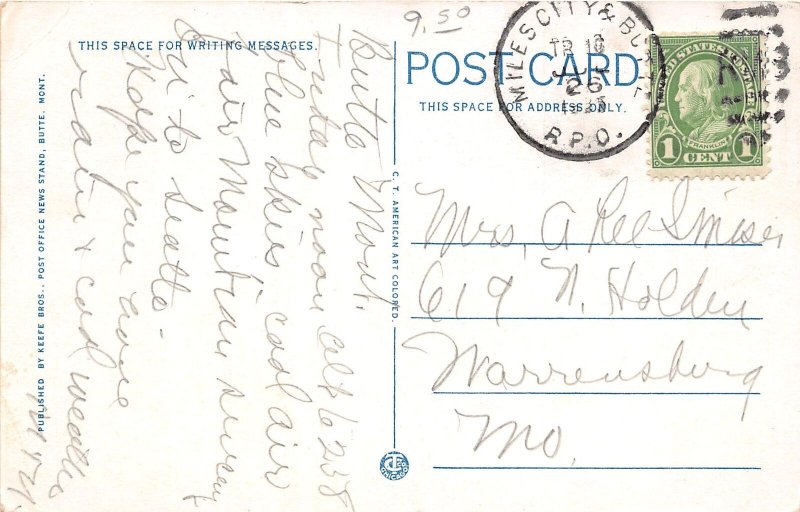 9.50
THIS SPACE FOR WRITING MESSAGES.
POST CARD
THIS SPACE FOR ADDRESS ONLY.
MILES CITY & BU
TR 18
26
R.P.O.
UNITED STATES POSTAGE
FRANKLIN
1 CENT 1
Butte Mont.
Friday noon alt 6258
blue skies cool air
fair Mountian scenery
On to Seattle.
Hope you have
rain & cool weather
PUBLISHED BY KEEFE BROS., POST OFFICE NEWS STAND, BUTTE, MONT.
C. T. AMERICAN ART COLORED.
Mrs. A Lee Smiser
619 N. Holden
Warrensburg
Mo.